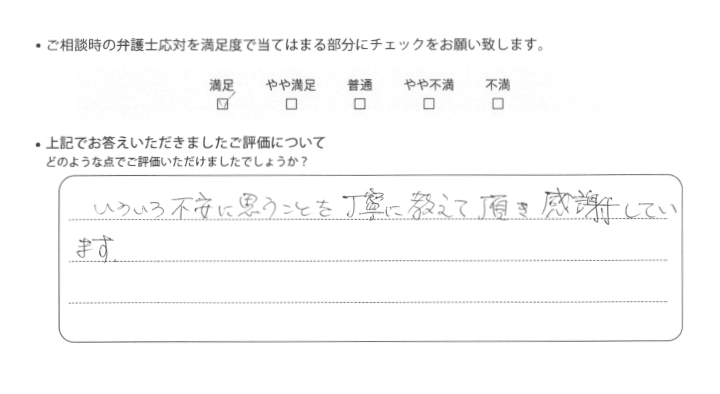 • ご相談時の弁護士応対を満足度で当てはまる部分にチェックをお願い致します。
満足 やや満足 普通 やや不満 不満
☑ □ □ □ □
• 上記でお答えいただきましたご評価について
どのような点でご評価いただけましたでしょうか？
いろいろ不安に思うことを丁寧に教えて頂き感謝してい
ます.